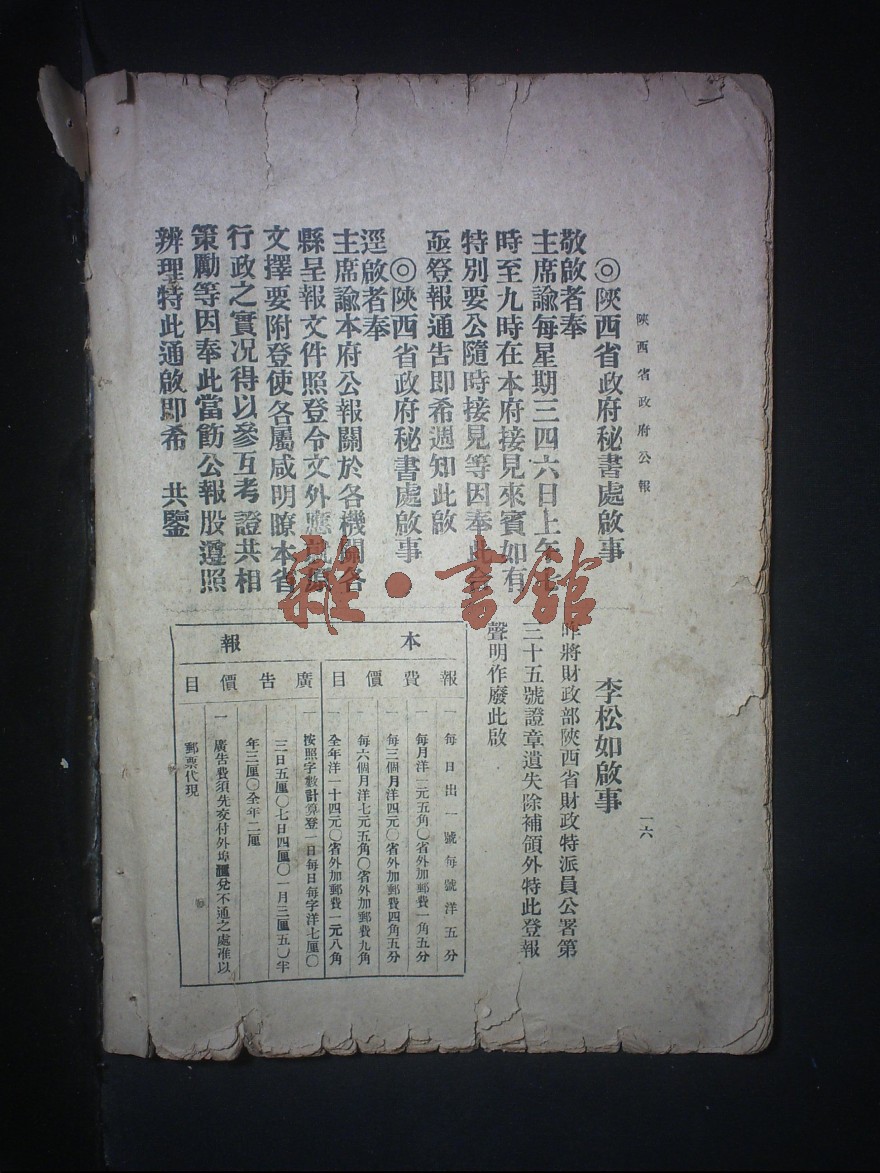 陝西省政府公報
一六
◎陝西省政府秘書處啟事
敬啟者奉
主席諭每星期三四六日上午
時至九時在本府接見來賓如有
特別要公隨時接見等因奉此合
亟登報通告即希週知此啟
◎陝西省政府秘書處啟事
逕啟者奉
主席諭本府公報關於各機關各
縣呈報文件照登令文外應
文擇要附登使各屬咸明瞭本省
行政之實况得以參互考證共相
策勵等因奉此當飭公報股遵照
辦理特此通啟即希 共鑒
李松如啟事
昨將財政部陝西省財政特派員公署第
三十五號證章遺失除補領外特此登報
聲明作廢此啟
本報
報費價目
一每日出一號每號洋五分
一每月洋一元五角〇省外加郵費一角五分
一每三個月洋四元〇省外加郵費四角五分
一每六個月洋七元五角〇省外加郵費九角
一全年洋一十四元〇省外加郵費一元八角
廣告價目
按照字數計算登一日每日每字洋七厘〇
三日五厘〇七日四厘〇一月三厘五〇半
年三厘〇全年二厘
一廣告費須先交付外埠滙兌不通之處准以
郵票代現
雜·書館